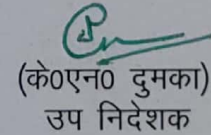 (के0एन0 दुमका)
उप निदेशक